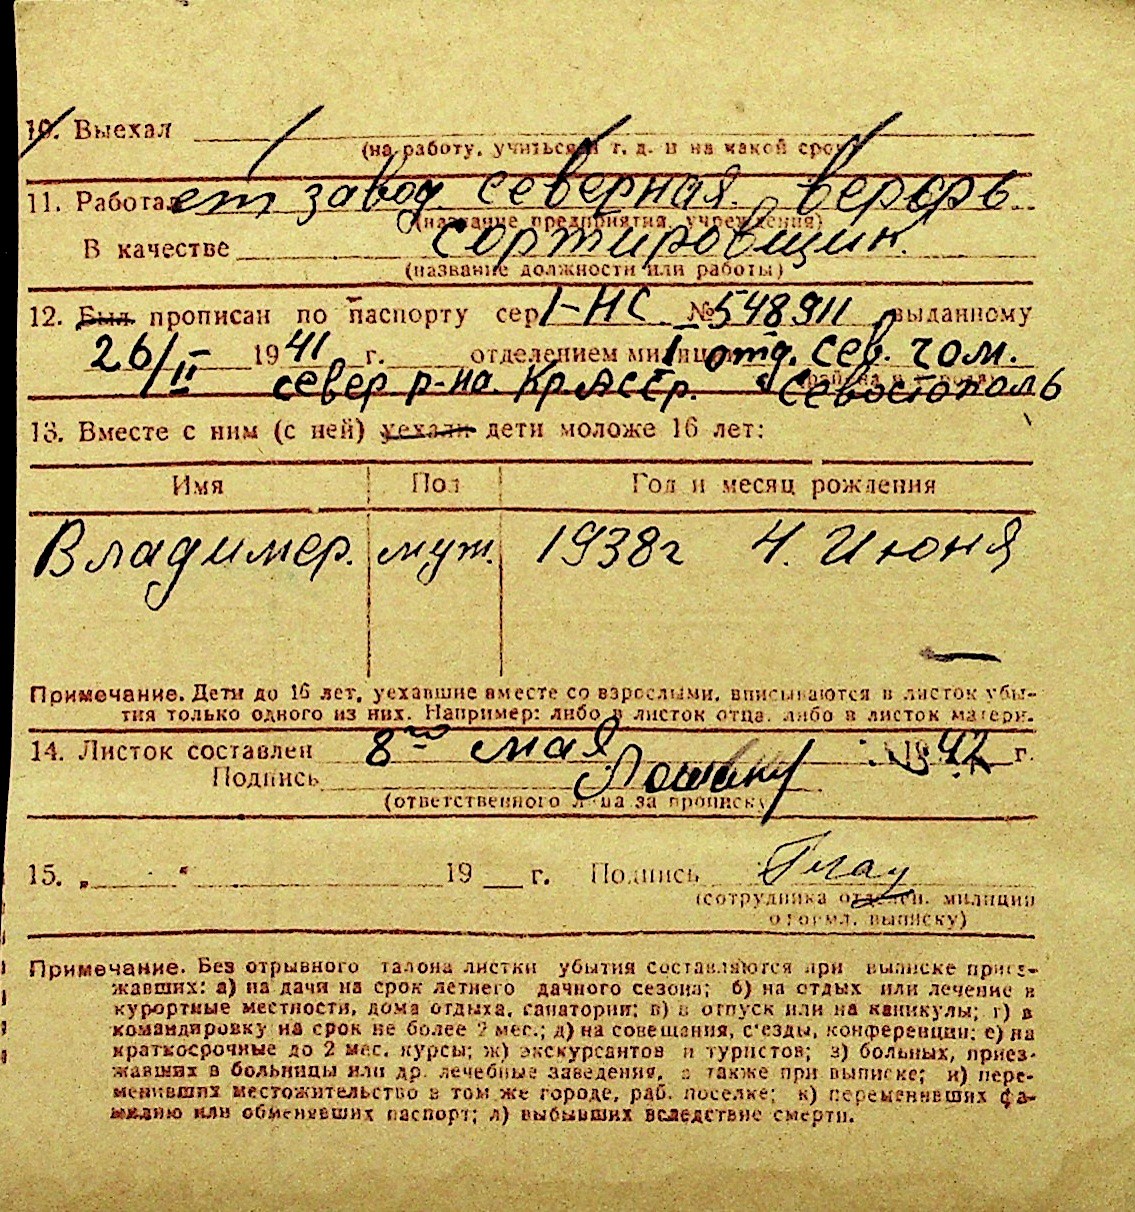 10. Выехал
(на работу, учиться и т. д. и на какой срок)
11. Работает завод. северная. верфь
(название предприятия, учреждения)
В качестве сортировщик.
(название должности или работы)
12. Был прописан по паспорту сер. I-НС № 548911 выданному
26/II 1941 г. отделением милиции I отд. сев. гом.
север р-на. Кр. АССр. Севостополь
13. Вместе с ним (с ней) уехали дети моложе 16 лет:
Имя Пол Год и месяц рождения
Владимер. муж. 1938г 4. Июня
Примечание. Дети до 16 лет, уехавшие вместе со взрослыми, вписываются в листок убы-
тия только одного из них. Например: либо в листок отца, либо в листок матери.
14. Листок составлен 8го мая 1942 г.
Подпись
(ответственного лица за прописку)
15. „ “ 19 г. Подпись
(сотрудника отделен. милиции
оформл. выписку)
Примечание. Без отрывного талона листки убытия составляются при выписке приез-
жавших: а) на дачи на срок летнего дачного сезона; б) на отдых или лечение в
курортные местности, дома отдыха, санатории; в) в отпуск или на каникулы; г) в
командировку на срок не более 2 мес.; д) на совещания, с'езды, конференции; е) на
краткосрочные до 2 мес. курсы; ж) экскурсантов и туристов; з) больных, приез-
жавших в больницы или др. лечебные заведения, а также при выписке; и) пере-
менивших местожительство в том же городе, раб. поселке; к) переменивших фа-
милию или обменявших паспорт; л) выбывших вследствие смерти.